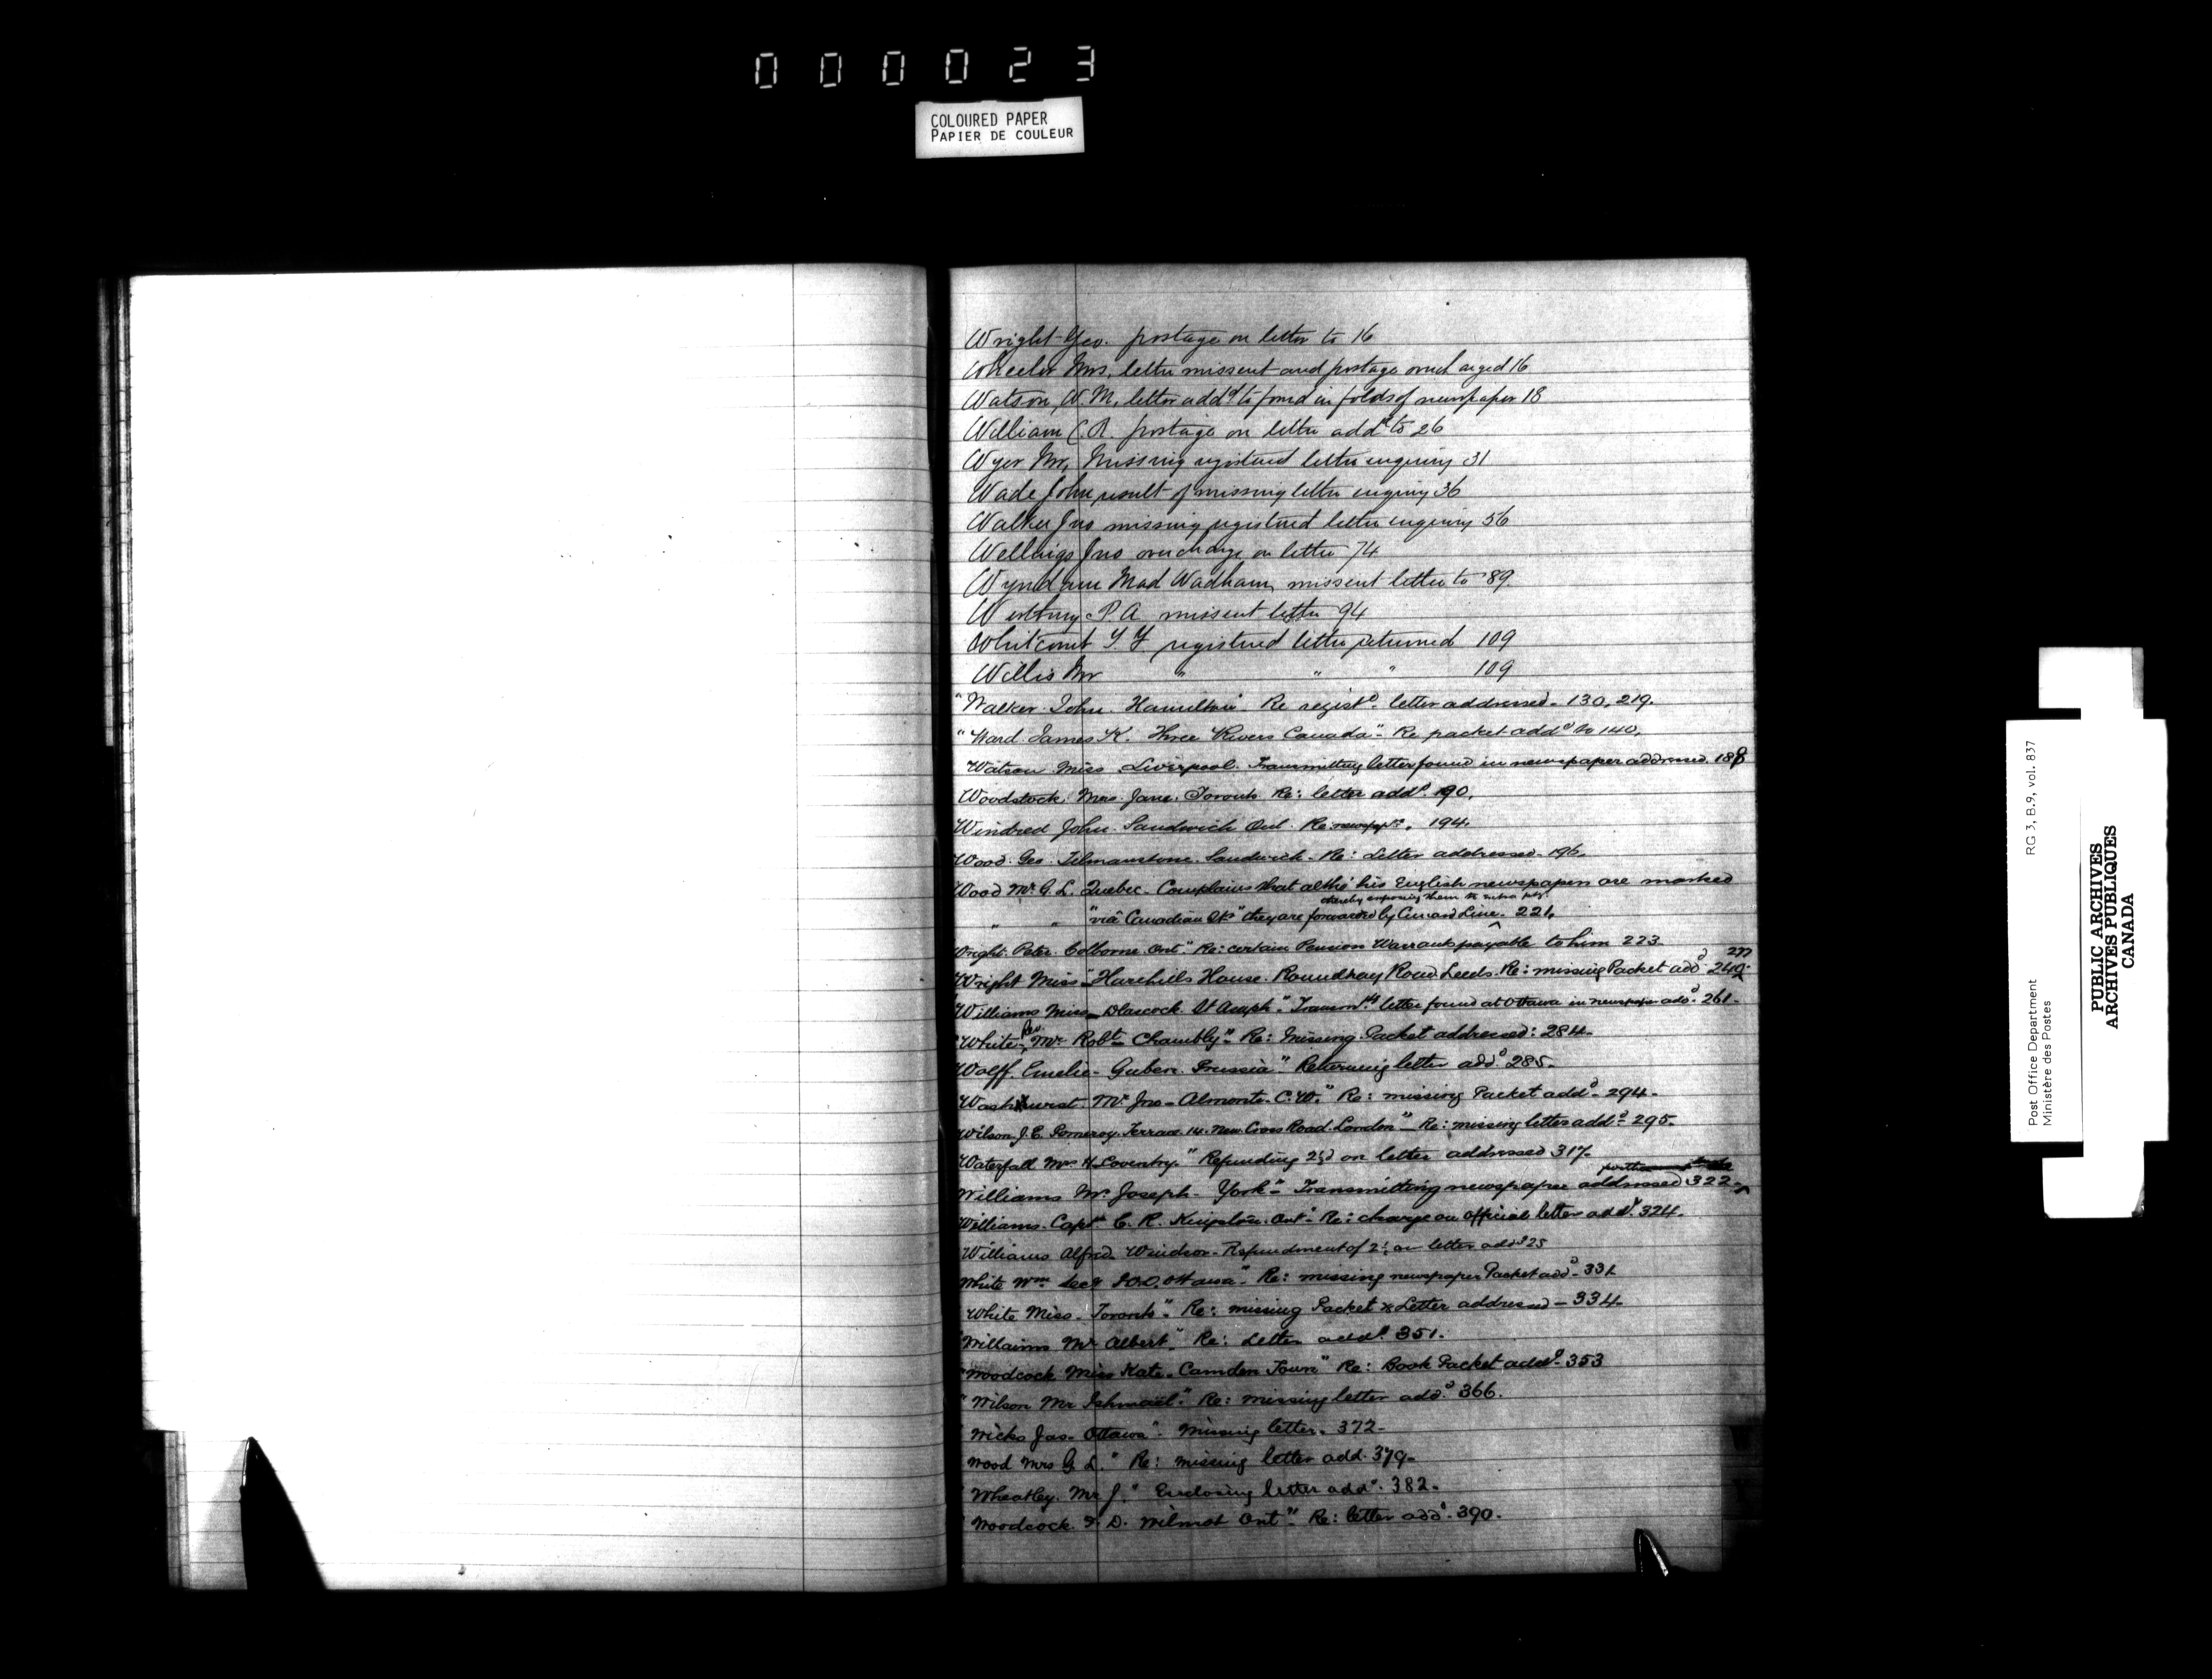 000023
COLOURED PAPER
PAPIER DE COULEUR
Wright Geo. postage on letter to 16
Wheeler Mrs, letter missent and postage overcharged 16
Watson, W. M, letter addd to found in folds of newspaper 18
William C. R. postage on letter addd to 26
Wyer Mr, Missing registered letter enquiry 31
Wade John result of missing letter enquiry 36
Walker Jno missing registered letter enquiry 56
Jno overcharge on letter 74
Wyndham Mad Wadham, missent letter to 89
P. A missent letter 94
registered letter returned 109
Willis Mr " " " 109
"Walker John. Hamilton" Re registd letter addressed. 130, 219.
"Ward James K. Three Rivers Canada" Re packet addd to 140.
Watson Miss Liverpool. Transmitting letter found in newspaper addressed. 188
Woodstock Mrs Jane. Toronto. Re: letter addd. 190.
Windred John. Sandwich Re: 194.
Wood Geo. Tilmanstone. Sandwich. Re: Letter addressed. 196.
Wood Mr G. L. Quebec. Complains that altho' his English newspapers are marked
thereby exposing them to extra
" " "via Canadian Pkt" they are forwarded by Cunard Line. 221.
Wright Peter. Colborne. Ont." Re: certain Pension Warrants payable to him 223
277
Wright Miss "Harehills House. Roundhay Road. Leeds. Re: missing Packet addd 240.
Williams Miss St Asaph." letter found at Ottawa in newspaper addd. 261.
Rev.
"White Mr Robt Chambly" Re: Missing Packet addressed: 284.
Wolff. Emelie. Guben. Prussia" Returning letter addd. 285.
Mr Jno. Almonte. C.W." Re: missing Packet addd. 294.
Wilson J. E. Pomeroy. Terrace. 14. New Cross Road. London" Re: missing letter addd 295.
Waterfall Mr H. Coventry." Refunding 2½d on letter addressed 317.
Williams Mr Joseph. York" Transmitting newspaper addressed 322.
Williams. Capt. C. R. Kingston. Ont" Re: charge on official letter addd. 324.
Williams Alfred. Windsor. Refundment of on letter addd 25
White Wm Secy P.O.D. Ottawa". Re: missing newspaper Packet addd. 331
White Miss. Toronto". Re: missing Packet & Letter addressed. 334.
Willaims Mr Albert". Re: Letter addd. 351.
"Woodcock Miss Kate. Camden Town" Re: Book Packet addd. 353
"Wilson Mr Ishmael." Re: missing letter addd. 366.
Wicks Jas. Ottawa". Missing letter. 372.
Wood Mrs G L." Re: missing letter add. 379.
Wheatley. Mr J." Enclosing letter addd. 382.
Woodcock. D. Wilmot Ont". Re: letter addd. 390.
Post Office Department RG 3, B.9, vol. 837
Ministère des Postes
PUBLIC ARCHIVES
ARCHIVES PUBLIQUES
CANADA